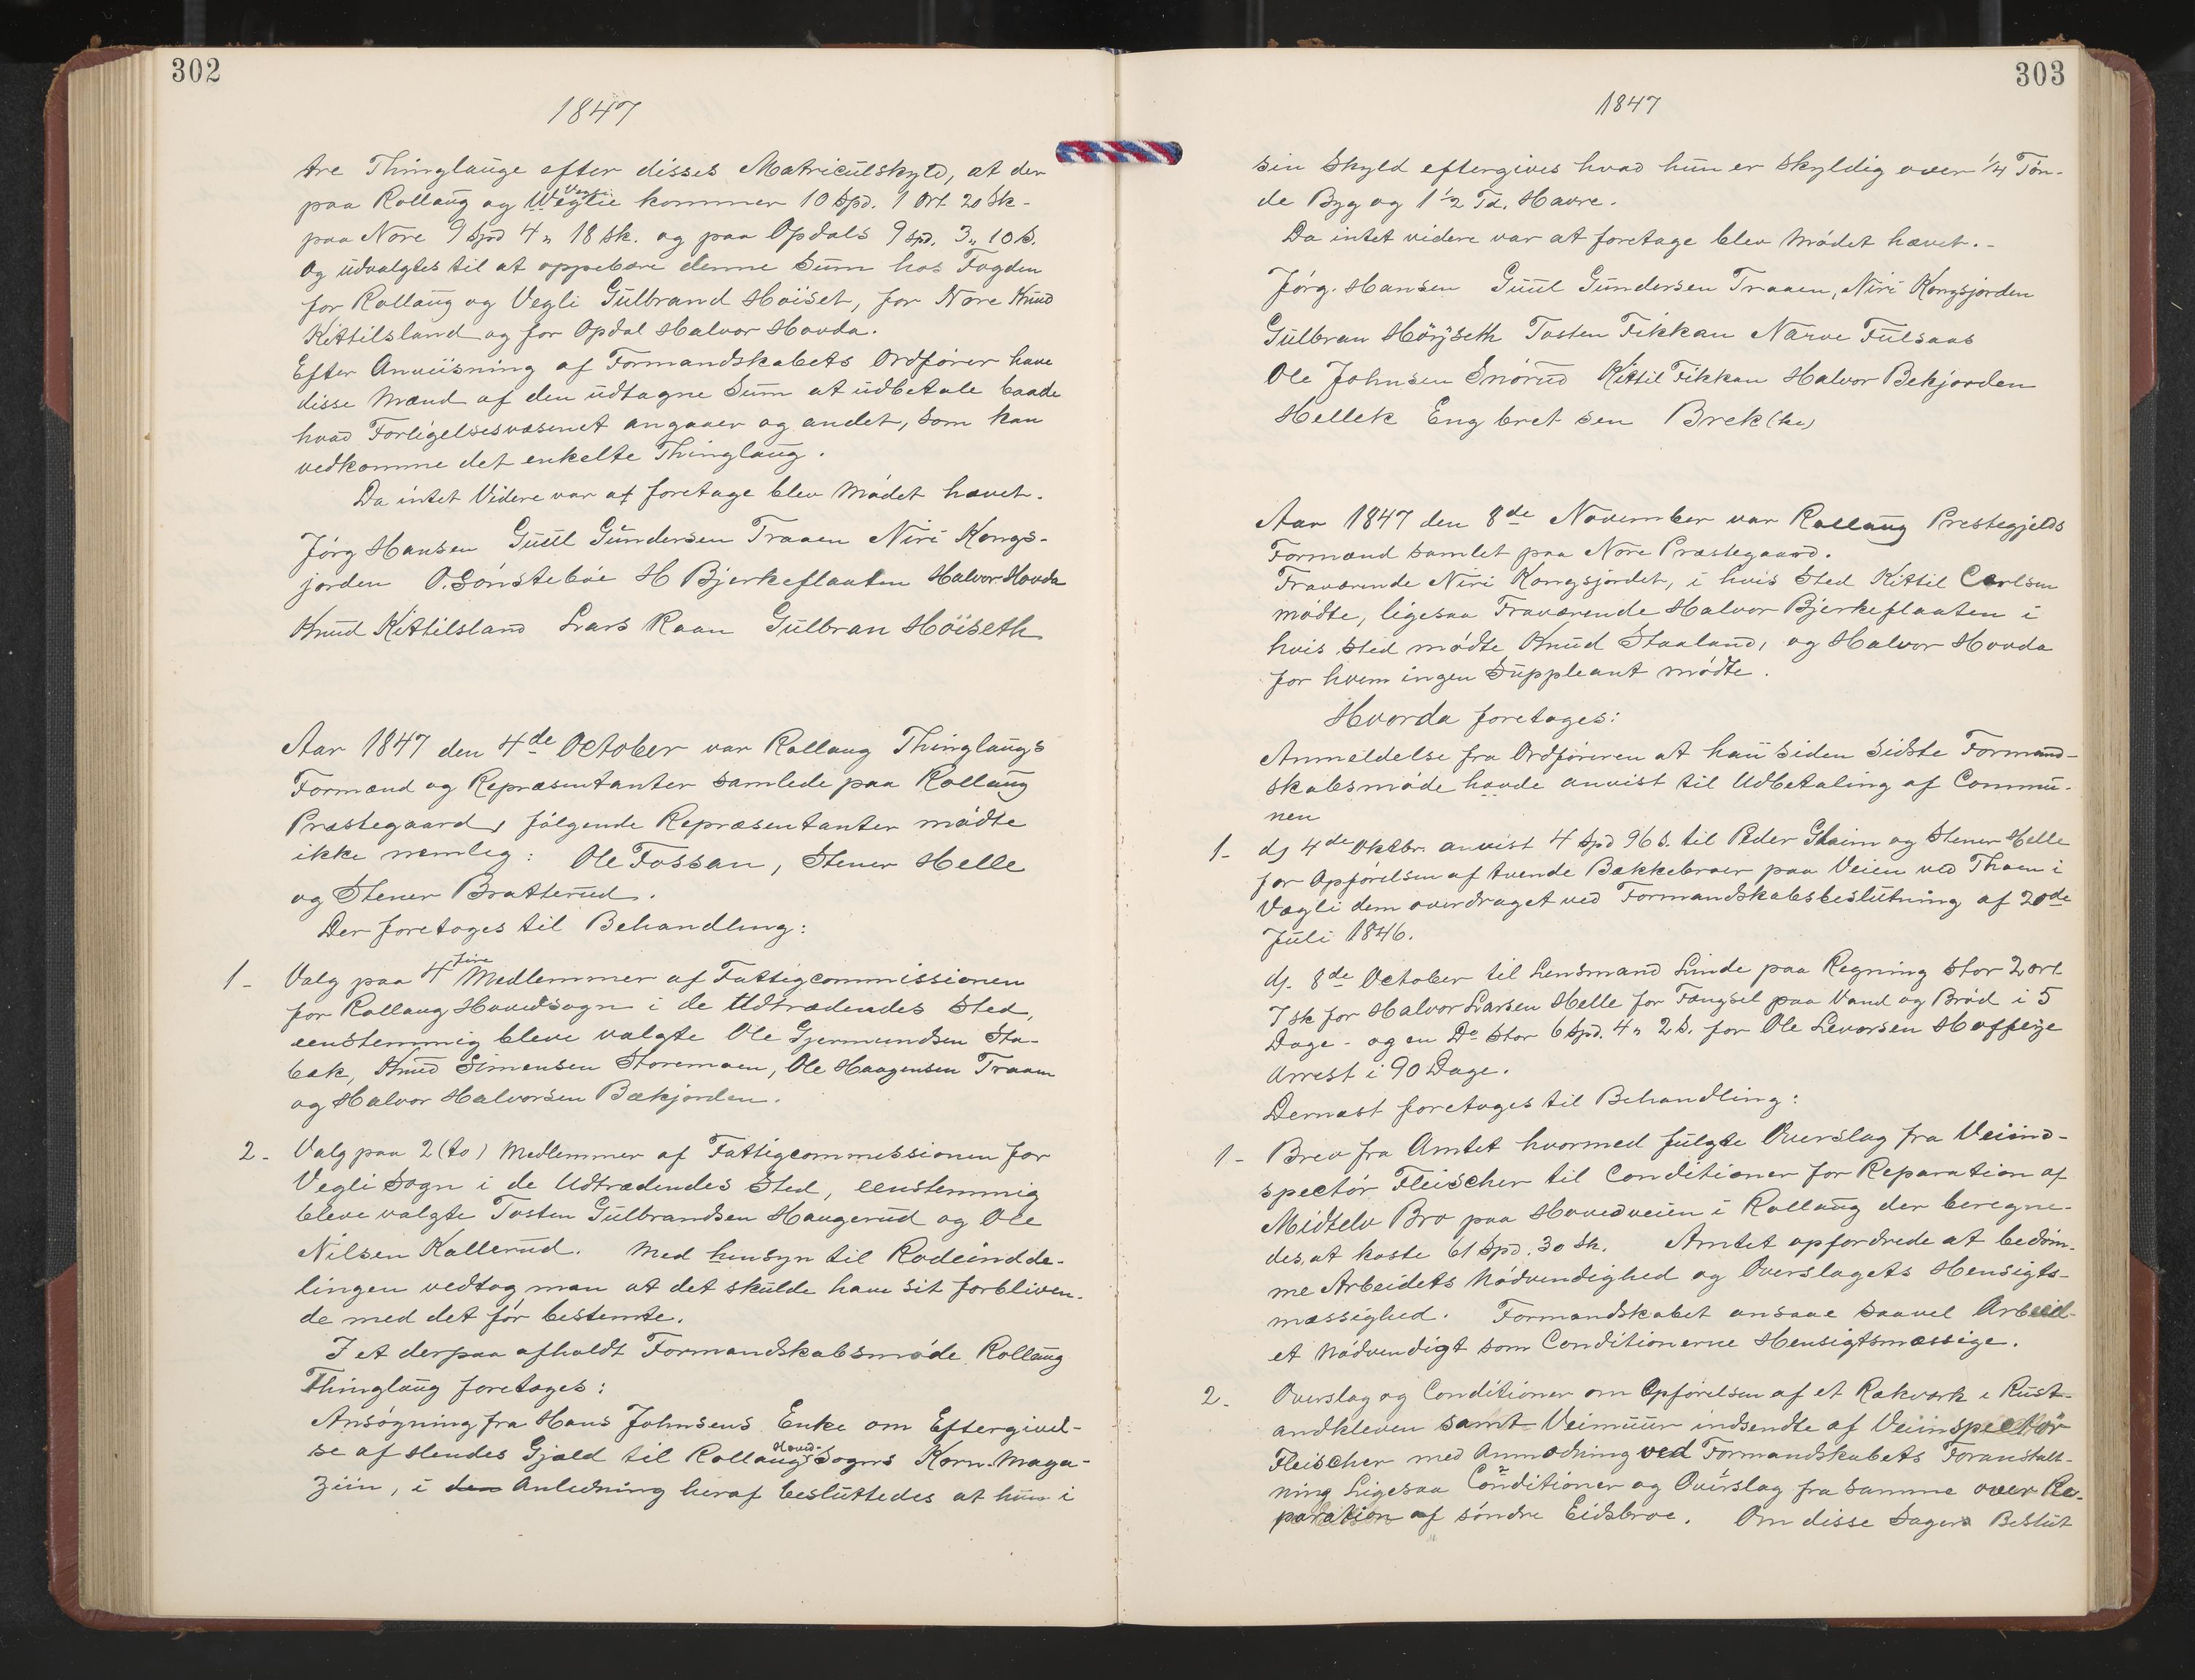 302
1847
tre Thinglauge efter disses Matriculskyld, at der
paa Rollaug og Weglie Vegli kommer 10 Spd. 1 Ort 20 Sk-
paa Nore 9 Spd 4 " 18 Sk. og paa Opdals 9 Spd. 3 " 10 S.
Og udvalgtes til at oppebære denne Sum hos Fogden
for Rollaug og Vegli Gulbrand Höiset, for Nore Knud
Kittilsland og for Opdal Halvor Hovda.
Efter Anviisning af Formandskabets Ordfører have
disse Mænd af den udtagne Sum at udbetale baade
hvad Forligelsesvæsenet angaaer og andet, som kan
vedkomme det enkelte Thinglaug.
Da intet Videre var at foretage blev Mødet hævet.
Jörg Hansen Guul Gundersen Traaen Niri Kongs-
jorden O. Sönsteböe H Bjerkeflaaten Halvor Hovda
Knud Kittilsland Lars Raan Gulbran Höiseth
Aar 1847 den 4de October var Rollaug Thinglaugs
Formænd og Repræsentanter samlede paa Rollaug
Præstegaard, følgende Repræsentanter mødte
ikke nemlig: Ole Fossan, Stener Helle
og Stener Bratterud.
Der foretoges til Behandling:
1- Valg paa 4 fire Medlemmer af Fattigcommissionen
for Rollaug Hovedsogn i de Udtrædendes Sted,
eenstemmig bleve valgte Ole Gjermundsen Sta-
bæk, Knud Simensen Storemoen, Ole Haagensen Traaen
og Halvor Halvorsen Bækjorden.
2- Valg paa 2 (to) Medlemmer af Fattigcommissionen for
Vegli Sogn i de Udtrædendes Sted, eenstemmig
bleve valgte Tosten Gulbrandsen Haugerud og Ole
Nilsen Kallerud. Med hensyn til Rodeindde-
lingen vedtog man at det skulde have sit forbliven-
de med det før bestemte.
I et derpaa afholdt Formandskabsmøde Rollaug
Thinglaug foretoges:
Ansøgning fra Hans Johnsens Enke om Eftergivel-
se af Hendes Gjæld til Rollaug Hoved- Sogns Korn-Maga-
ziin, i den Anledning heraf besluttedes at hun i
303
1847
sin Skyld eftergives hvad hun er skyldig over 1/4 Tøn-
de Byg og 1 1/2 Td. Havre.
Da intet videre var at foretage blev Mødet hævet.-
Jörg. Hansen Guul Gundersen Traaen, Niri Kongsjorden
Gulbran Höyseth Tosten Fikkan Narve Fulsaas
Ole Johnsen Snörud Kittil Fikkan Halvor Bekjorden
Hellek Eng bret sen Brek(ke)
Aar 1847 den 8de November var Rollaug Prestegjelds
Formænd samlet paa Nore Præstegaard.
Fraværende Niri Kongsjordet, i hvis Sted Kittil Carlsen
mødte, ligesaa Fraværende Halvor Bjerkeflaaten i
hvis Sted mødte Knud Staaland, og Halvor Hovda
for hvem ingen Suppleant mødte.
Hvorda foretoges:
Anmeldelse fra Ordføreren at han siden Sidste Formand-
skabsmøde havde anvist til Udbetaling af Commu-
nen
1- dj 4de Oktbr. anvist 4 Spd 96 S. til Peder Glaim og Stener Helle
for Opførelsen af tvende Bækkebroer paa Veien ved Thoen i
Vægli dem overdraget ved Formandskabsbeslutning af 20de
Juli 1846.
dj. 8de October til Lensmand Linde paa Regning stor 2 ort
7 sk for Halvor Larsen Helle for Fængsel paa Vand og Brød i 5
Dage - og en Do Stor 6 Spd. 4 " 2 S. for Ole Levorsen Hoffeije
Arrest i 90 Dage.
Dernæst foretoges til Behandling:
1- Brev fra Amtet hvormed fulgte Overslag fra Veiind-
spectör Fleischer til Conditioner for Reparation af
Midtelv Bro paa Hovedveien i Rollaug der beregne-
des, at koste 61 Spd. 30 Sk. Amtet opfordrede at bedøm-
me Arbeidets Nødvendighed og Overslagets Hensigts-
mæssighed. Formandskabet ansaae saavel Arbeid-
et Nødvendigt som Conditionerne Hensigtsmæssige.
2. Overslag og Conditioner om Opførelsen af et Rækværk i Rust-
andkleven samt Veimuur indsendte af Veiinspectör
Fleischer med Anmodning ved Formandskabets Foranstalt-
ning Ligesaa Conditioner og Overslag fra samme over Re-
paration af søndre Eidsbroe. Om disse Sagers Beslut